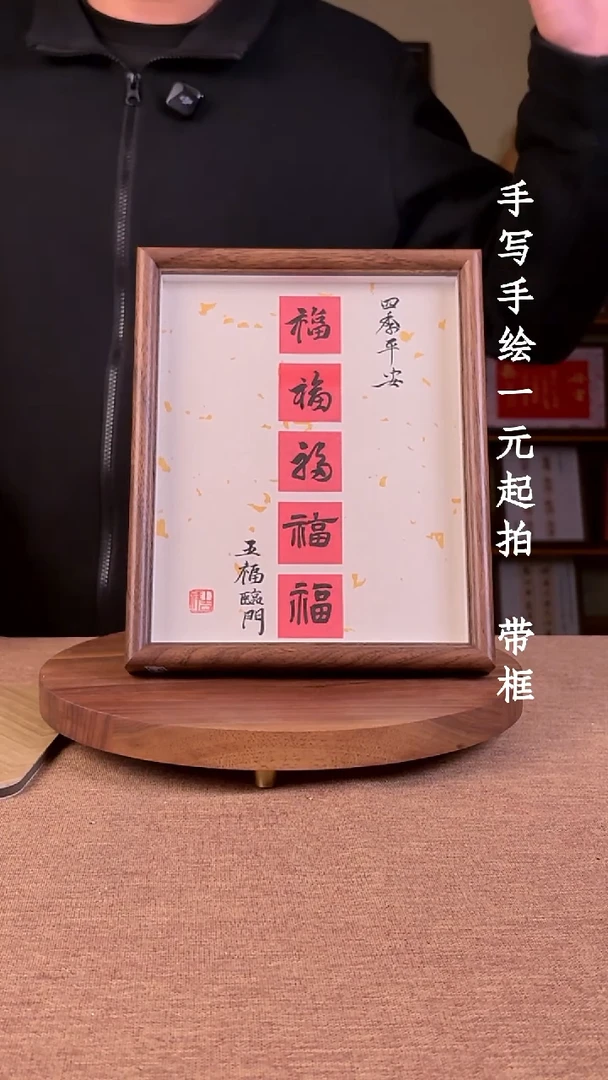 手写手绘一元起拍 带框
四季平安
福
福
福
福
福
五福臨門